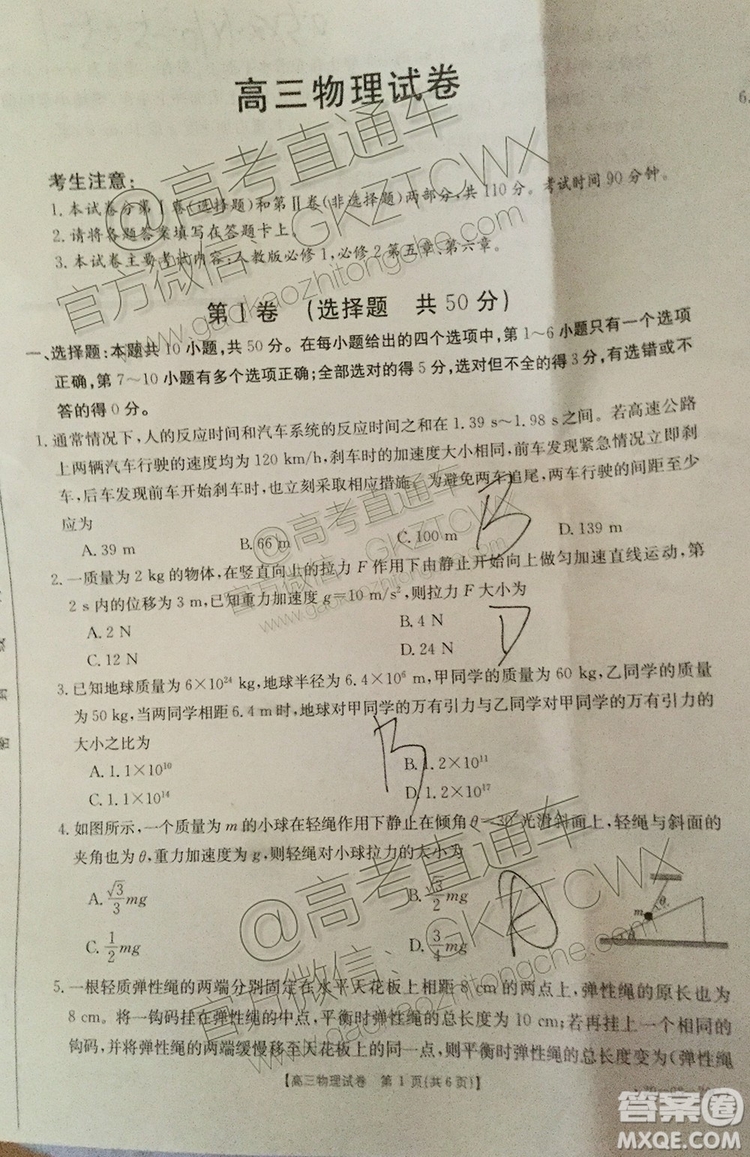 高三物理试卷
考生注意:
1.本试卷分第Ⅰ卷(选择题)和第Ⅱ卷(非选择题)两部分,共110分。考试时间90分钟。
2.请将各题答案填写在答题卡上。
3.本试卷主要考试内容:人教版必修1,必修2第五章、第六章。
第Ⅰ卷 (选择题 共50分)
一、选择题:本题共10小题,共50分。在每小题给出的四个选项中,第1~6小题只有一个选项
正确,第7~10小题有多个选项正确;全部选对的得5分,选对但不全的得3分,有选错或不
答的得0分。
1.通常情况下,人的反应时间和汽车系统的反应时间之和在1.39 s~1.98 s之间。若高速公路
上两辆汽车行驶的速度均为120 km/h,刹车时的加速度大小相同,前车发现紧急情况立即刹
车,后车发现前车开始刹车时,也立刻采取相应措施。为避免两车追尾,两车行驶的间距至少
应为
A.39 m B.66 m C.100 m D.139 m
B
2.一质量为2 kg的物体,在竖直向上的拉力F作用下由静止开始向上做匀加速直线运动,第
2 s内的位移为3 m,已知重力加速度g=10 m/s²,则拉力F大小为
A.2 N B.4 N
C.12 N D.24 N
D
3.已知地球质量为6×10²⁴ kg,地球半径为6.4×10⁶ m,甲同学的质量为60 kg,乙同学的质量
为50 kg,当两同学相距6.4 m时,地球对甲同学的万有引力与乙同学对甲同学的万有引力的
大小之比为
A.1.1×10¹⁰ B.1.2×10¹¹
C.1.1×10¹⁴ D.1.2×10¹⁷
B
4.如图所示,一个质量为m的小球在轻绳作用下静止在倾角θ=30°光滑斜面上,轻绳与斜面的
夹角也为θ,重力加速度为g,则轻绳对小球拉力的大小为
A.√3/3 mg B.√3/2 mg
C.1/2 mg D.3/4 mg
A
m θ
θ
5.一根轻质弹性绳的两端分别固定在水平天花板上相距8 cm的两点上,弹性绳的原长也为
8 cm。将一钩码挂在弹性绳的中点,平衡时弹性绳的总长度为10 cm;若再挂上一个相同的
钩码,并将弹性绳的两端缓慢移至天花板上的同一点,则平衡时弹性绳的总长度变为(弹性绳
【高三物理试卷 第1页(共6页)】
6.
@高考直通车
官方微信:GKZTCWX
www.gaokaozhitongche.com
@高考直通车
官方微信:GKZTCWX
www.gaokaozhitongche.com
@高考直通车
官方微信:GKZTCWX
www.gaokaozhitongche.com
答案圈
MXQE.COM